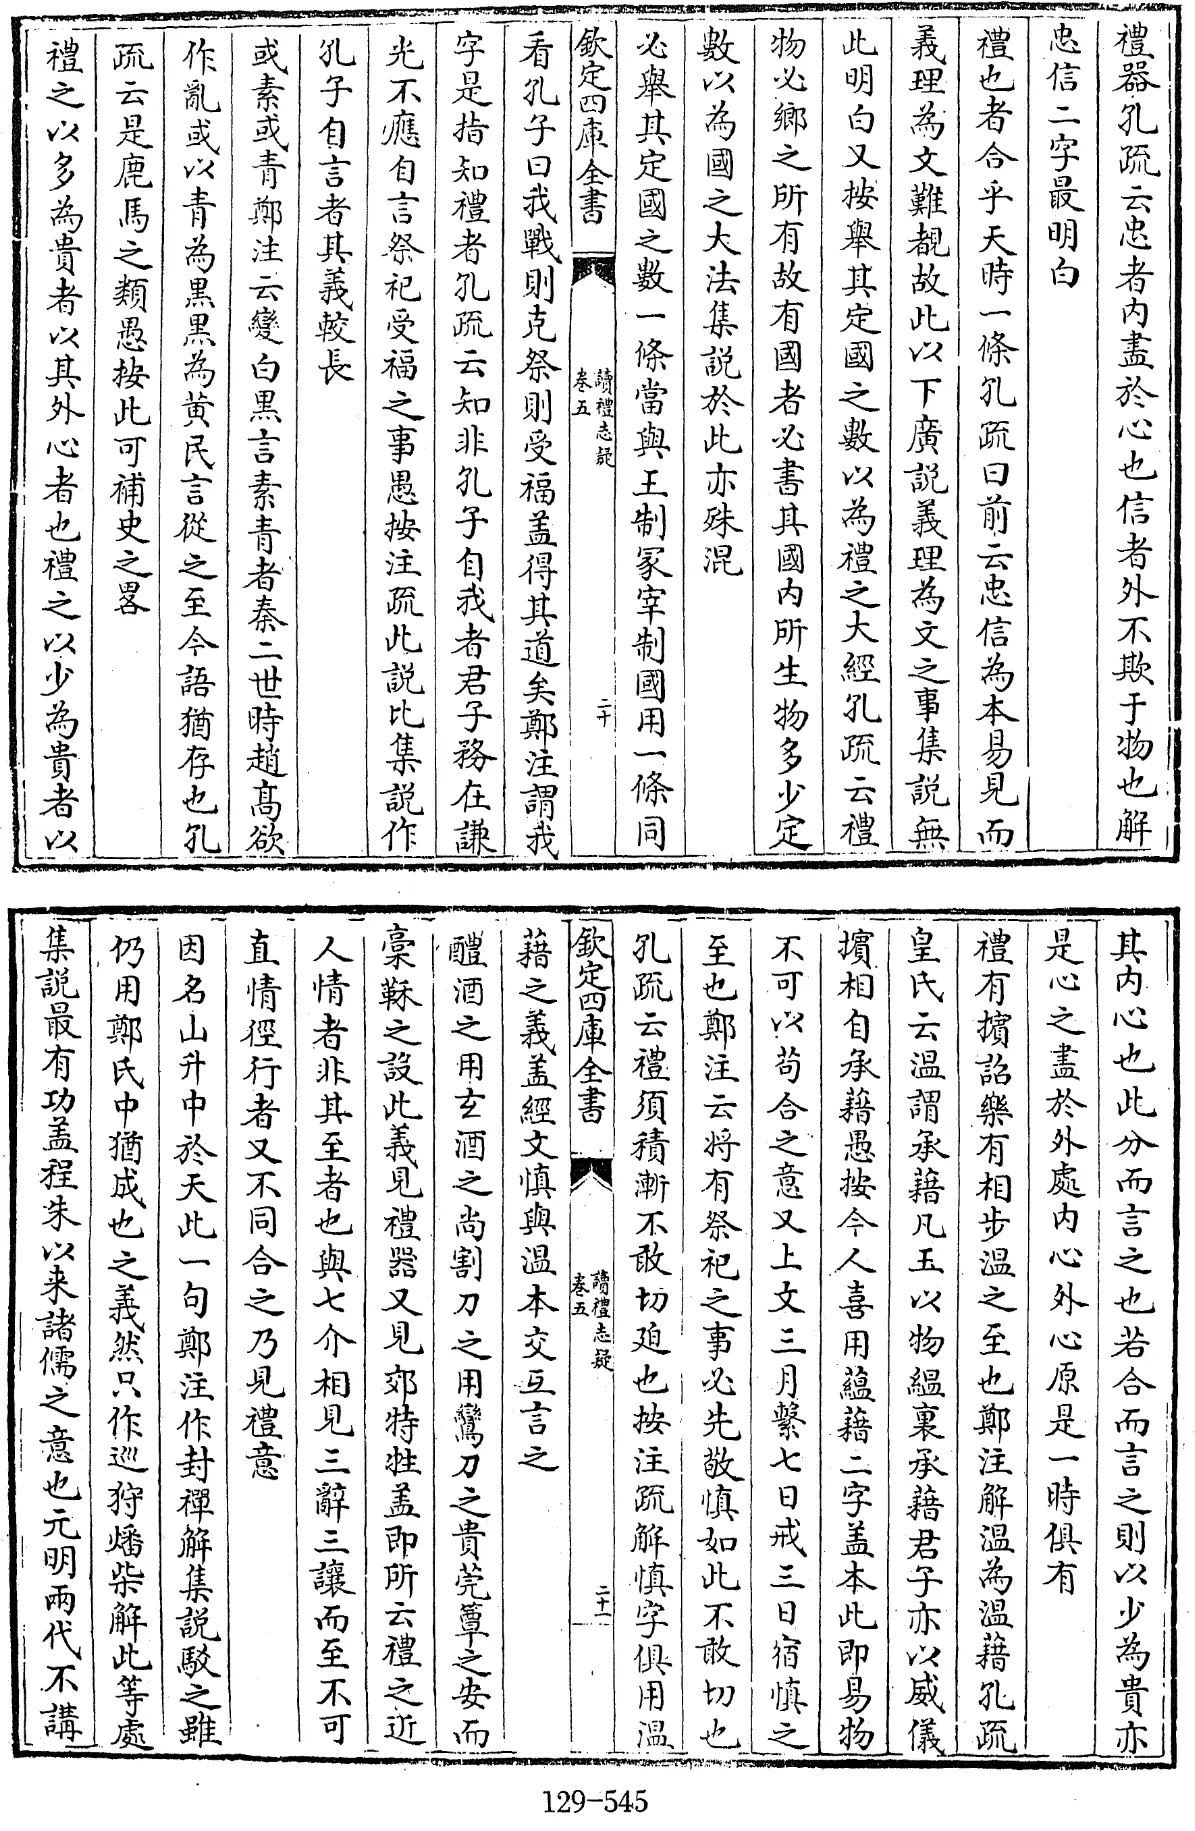 禮器孔疏云忠者内盡於心也信者外不欺于物也解
忠信二字最明白
禮也者合乎天時一條孔疏曰前云忠信為本易見而
義理為文難覩故此以下廣説義理為文之事集説無
此明白又按舉其定國之數以為禮之大經孔疏云禮
物必鄉之所有故有國者必書其國内所生物多少定
數以為國之大法集説於此亦殊混
必舉其定國之數一條當與王制冢宰制國用一條同
欽定四庫全書
讀禮志疑
卷五
二十
看孔子曰我戰則克祭則受福盖得其道矣鄭注謂我
字是指知禮者孔疏云知非孔子自我者君子務在謙
光不應自言祭祀受福之事愚按注疏此説比集説作
孔子自言者其義較長
或素或青鄭注云變白黑言素青者秦二世時趙髙欲
作亂或以青為黑黑為黄民言從之至今語猶存也孔
疏云是鹿馬之類愚按此可補史之畧
禮之以多為貴者以其外心者也禮之以少為貴者以
其内心也此分而言之也若合而言之則以少為貴亦
是心之盡於外處内心外心原是一時俱有
禮有擯詔樂有相步温之至也鄭注解温為温藉孔疏
皇氏云温謂承藉凡玉以物緼裏承藉君子亦以威儀
擯相自承藉愚按今人喜用藴藉二字盖本此即易物
不可以苟合之意又上文三月繫七日戒三日宿慎之
至也鄭注云将有祭祀之事必先敬慎如此不敢切也
孔疏云禮須積漸不敢切廹也按注疏解慎字俱用温
欽定四庫全書
讀禮志疑
卷五
二十一
藉之義盖經文慎與温本交互言之
醴酒之用玄酒之尚割刀之用鸞刀之貴莞簟之安而
稾鞂之設此義見禮器又見郊特牲盖即所云禮之近
人情者非其至者也與七介相見三辭三讓而至不可
直情徑行者又不同合之乃見禮意
因名山升中於天此一句鄭注作封禪解集説駁之雖
仍用鄭氏中猶成也之義然只作巡狩燔柴解此等處
集説最有功盖程朱以来諸儒之意也元明兩代不講
129-545